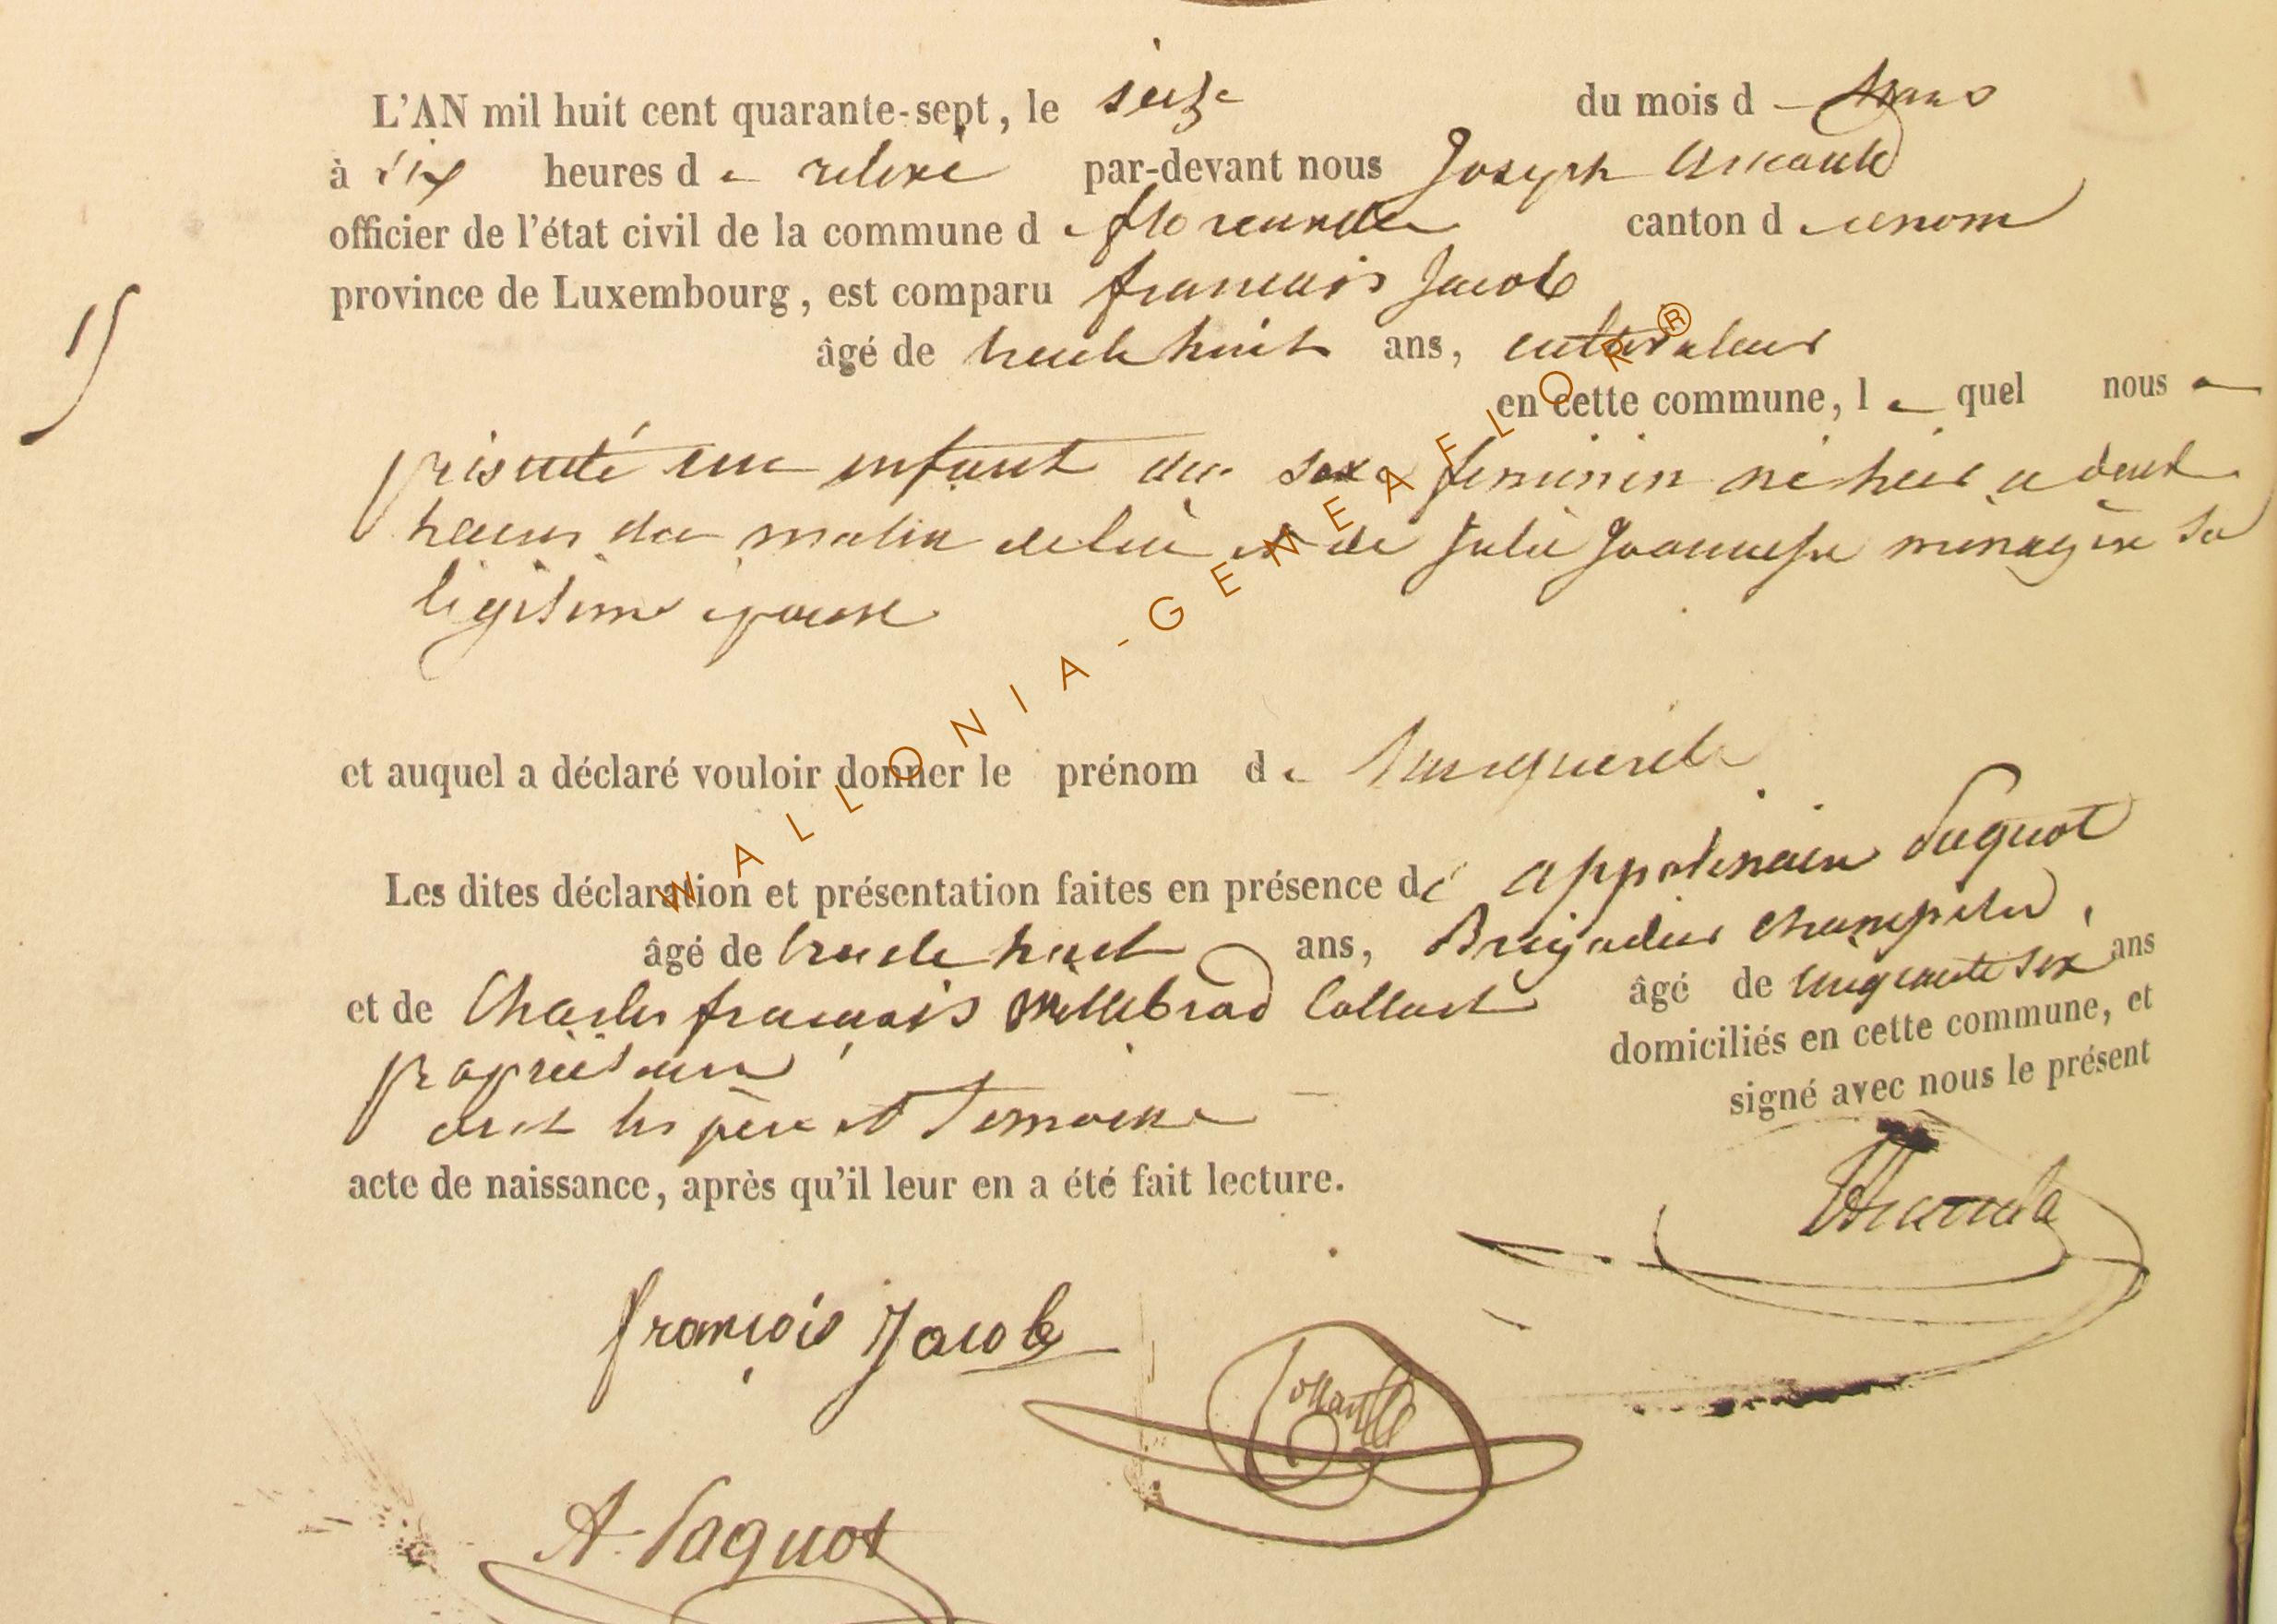 L'AN mil huit cent quarante-sept, le seize du mois de Mars
à six heures de relevé par-devant nous Joseph
officier de l'état civil de la commune de florenville canton d
province de Luxembourg, est comparu francois Jacob
15
âgé de trente huit ans, cultivateur
en cette commune, lequel nous a
présenté un enfant du sexe feminin né hier a deux
heures du matin de lui et de Julie menagère sa
légitime épouse
et auquel a déclaré vouloir donner le prénom de Marguerite
Les dites déclaration et présentation faites en présence de appolinaire Paquot
âgé de trente huit ans, Brigadier Champetre,
et de Charles francois Willebrod Collart âgé de cinquante six ans
propriétaire domiciliés en cette commune, et
ont les père et temoins signé avec nous le présent
acte de naissance, après qu'il leur en a été fait lecture.
françois Jacob
Collart
A. Paquot
WALLONIA-GENEAFLOR®